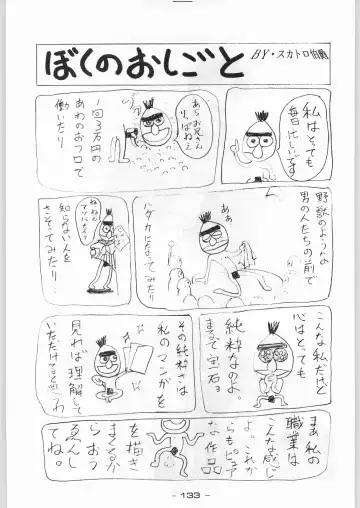 ぼくのおしごと
BY・スカトロ伯爵
私はとても
毎日忙しいです
あらお兄さん
りっぱねえ
1回3万円の
あわのおフロで
働いたり
野獣のような
男の人たちの前で
あぁ
ハダカになってみたり
ねぇねぇ
知らない人を
さそってみたり
こんな私だけど
心はとっても
純粋なのよ。
まるで宝石ョ
その純粋さは
私のマンガを
見れば理解して
いただけると思うわ
まあ私の
職業は
こんな感じ
よ。これか
らもピュア
な作品
を描き
まくるか
らおう
えんし
てね。
- 133 -